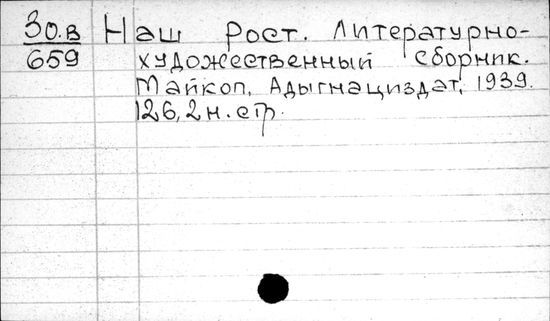 30.в Наш Рост. Литературно-
659 художественный сборник.
Майкоп, Адыгнациздат, 1939.
126, 2 н. стр.